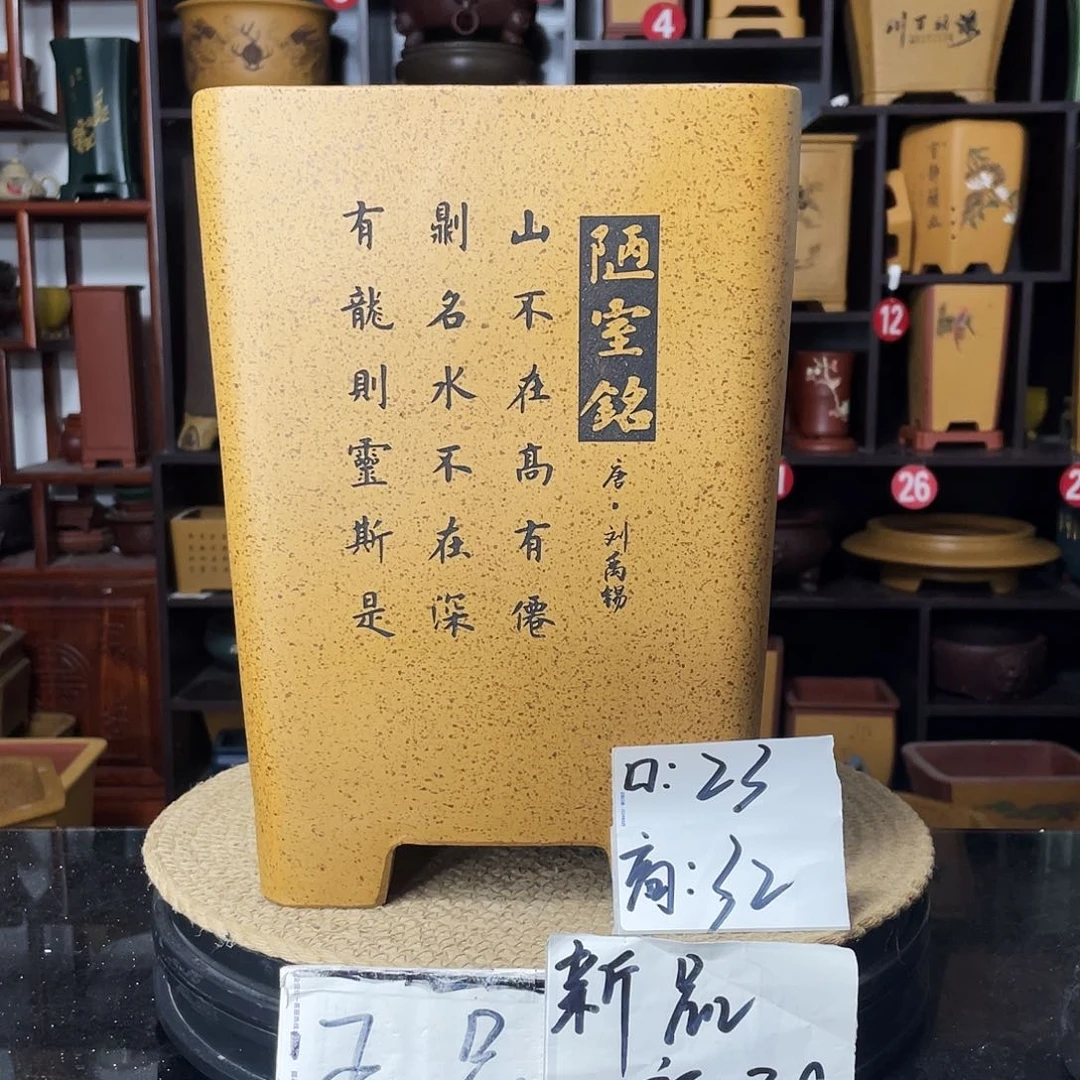 陋室銘
唐·刘禹锡
山不在髙有僊
則名水不在深
有龍則靈斯是
口:23
高:32
新品
4
12
26